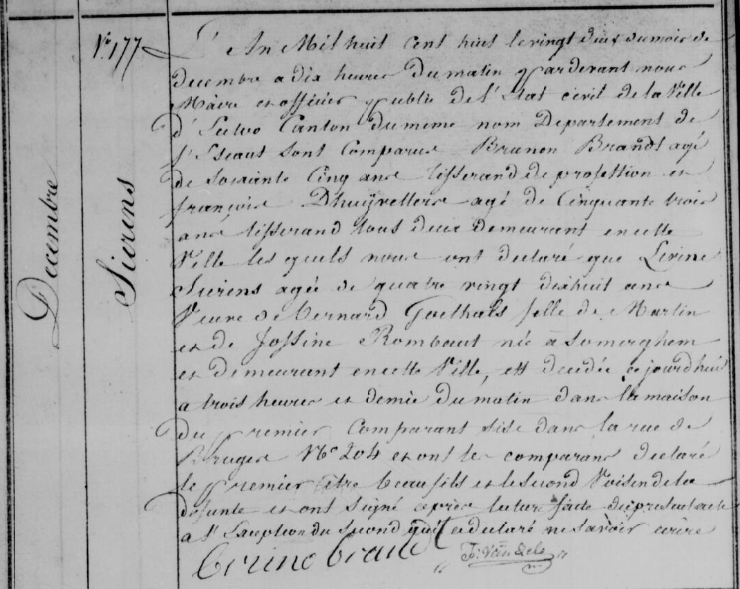 Decembre
Sierens
No 177
L'An Mil huit cent huit le vingt deux du mois de
decembre a dix heures du matin pardevant nous
Maire et officier public de l'Etat civil de la Ville
d'Eecloo Canton du meme nom Departement de
l'Escaut sont comparus Brunon Brandt agé
de soixante cinq ans tisserand de profession et
françois Dhuÿvettere agé de cinquante trois
ans tisserand tous deux demeurant en cette
Ville les quels nous ont declaré que Livine
Sierens agée de quatre vingt dixhuit ans
Veuve de Bernard Goethals fille de Martin
et de Jossine Rombaut née à Somerghem
et demeurant en cette Ville, est decedée ce jourdhui
a trois heures et demie du matin dans la maison
du premier comparant sise dans la rue de
Bruges No 204 et ont les comparans declaré
le premier être beaufils et le second Voisin de la
defunte et ont signé après lecture faite du présent acte
a l'exception du second qui a declaré ne savoir ecrire